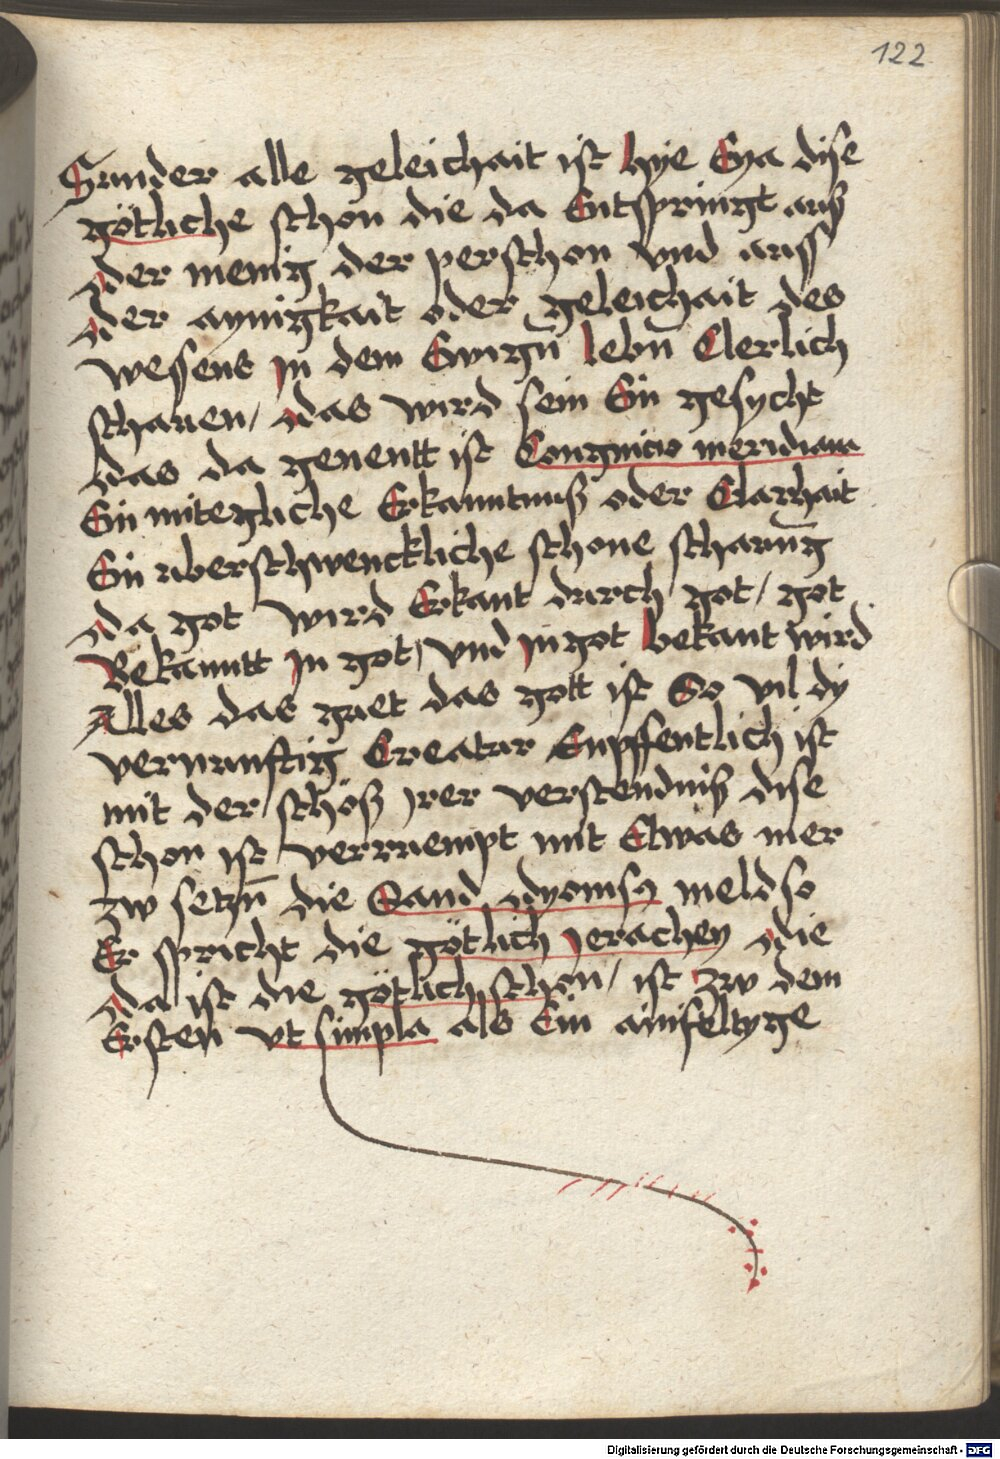 122
Sunder alle geleichait ist hye Eya dise
götliche schon die da Entspringt auß
der menig der perschon vnd auss
der aynigkait oder geleichait des
wesens jn dem Ewign̄ lebn̄ Clerlich
schauen / das wird sein Ein gesycht
das da genentt ist Congnicio meridiana
Ein mitegliche Erkanntnuß oder Clarhait
Ein uberschwenckliche schone schauung
da got wird Erkant durch got / got
Bekanntt jn got / vnd jn got bekant wird
Alles das guet das gott ist So vil dy
vernunftig Creatur Enpfentlich ist
mit der schöß jrer verstendniß dise
schon ist verruempt mit Etwas mer
zw setzn̄ die Sand meld so
Er spricht die götlich jerachey die
da ist die götlich schon / ist zw dem
Ersten vt simpla als Ein ainfeltyge
Digitalisierung gefördert durch die Deutsche Forschungsgemeinschaft - DFG